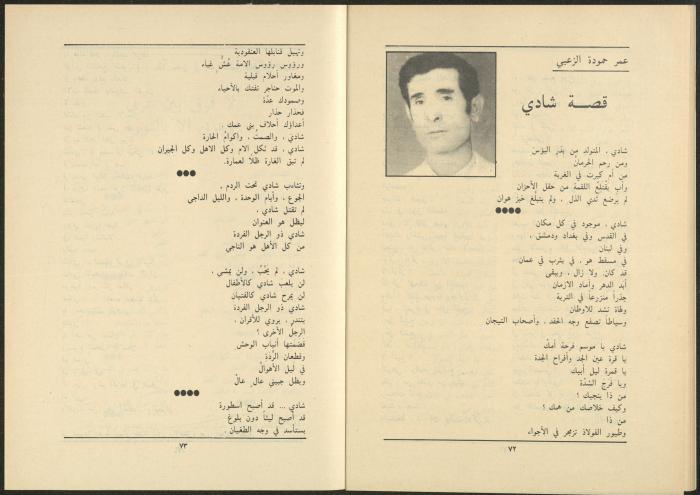 عمر حمودة الزعبي
قصـــة شادي
شادي ، المتولد من بذر البؤس
ومن رحم الحرمان
من أم كبرت في الغربة
وأب يقتلع اللقمة من حقل الأحزان
لم يرضع ثدي الذل ، ولم يتبلغ خبز هوان
شادي ، موجود في كل مكان
في القدس وفي بغداد ودمشق ،
وفي لبنان
في مسقط هو ، في يثرب في عمان
قد كان ولا زال ، ويبقى
أبد الدهر وآماد الازمان
جذراً منزرعاً في التربة
وقناة تشد للاوطان
وسياطاً تصفع وجه الحقد ، وأصحاب التيجان
شادي يا موسم فرحة أمك
يا قرة عين الجد وأفراح الجدة
يا قمرة ليل أبيك
ويا فرج الشدة
من ذا ينجيك ؟
وكيف خلاصك من همك ؟
من ذا
وطيور الفولاذ تزمجر في الأجواء
٧٢
وتهيل قنابلها العنقودية
ورؤوس رؤوس الامة عُشُّ غباء
ومغاور أحلام قبلية
والموت حناجر تفتك بالأحياء
وصمودك عدّة
فحذار حذار
أعداؤك أحلاف بني عمك ،
شادي ، والصمت ، واكوام الحارة
شادي ، قد تكل الام وكل الاهل وكل الجيران
لم تبق الغارة ظلاً لعمارة.
وتثاءب شادي تحت الردم ،
الجوع ، وأيام الوحدة ، والليل الداجي
لم تقتل شادي ،
ليظل هو العنوان
شادي ذو الرجل الفردة
من كل الأهل هو الناجي
شادي ، لم يَحْبُ ، ولن يمشي ،
لن يلعب شادي كالأطفال
لن يمرح شادي كالفتيان
شادي ذو الرجل الفردة
بتندر ، يروي للأقران ،
الرجل الأخرى ؟
قضمتها أنياب الوحش
وقطعان الرِّدة
في ليل الأهوال
ويظل جبيني عالٍ عالْ
شادي ... قد أصبح اسطورة
قد أصبح ليثاً دون بلوغ
يستأسد في وجه الطغيان .
٧٣